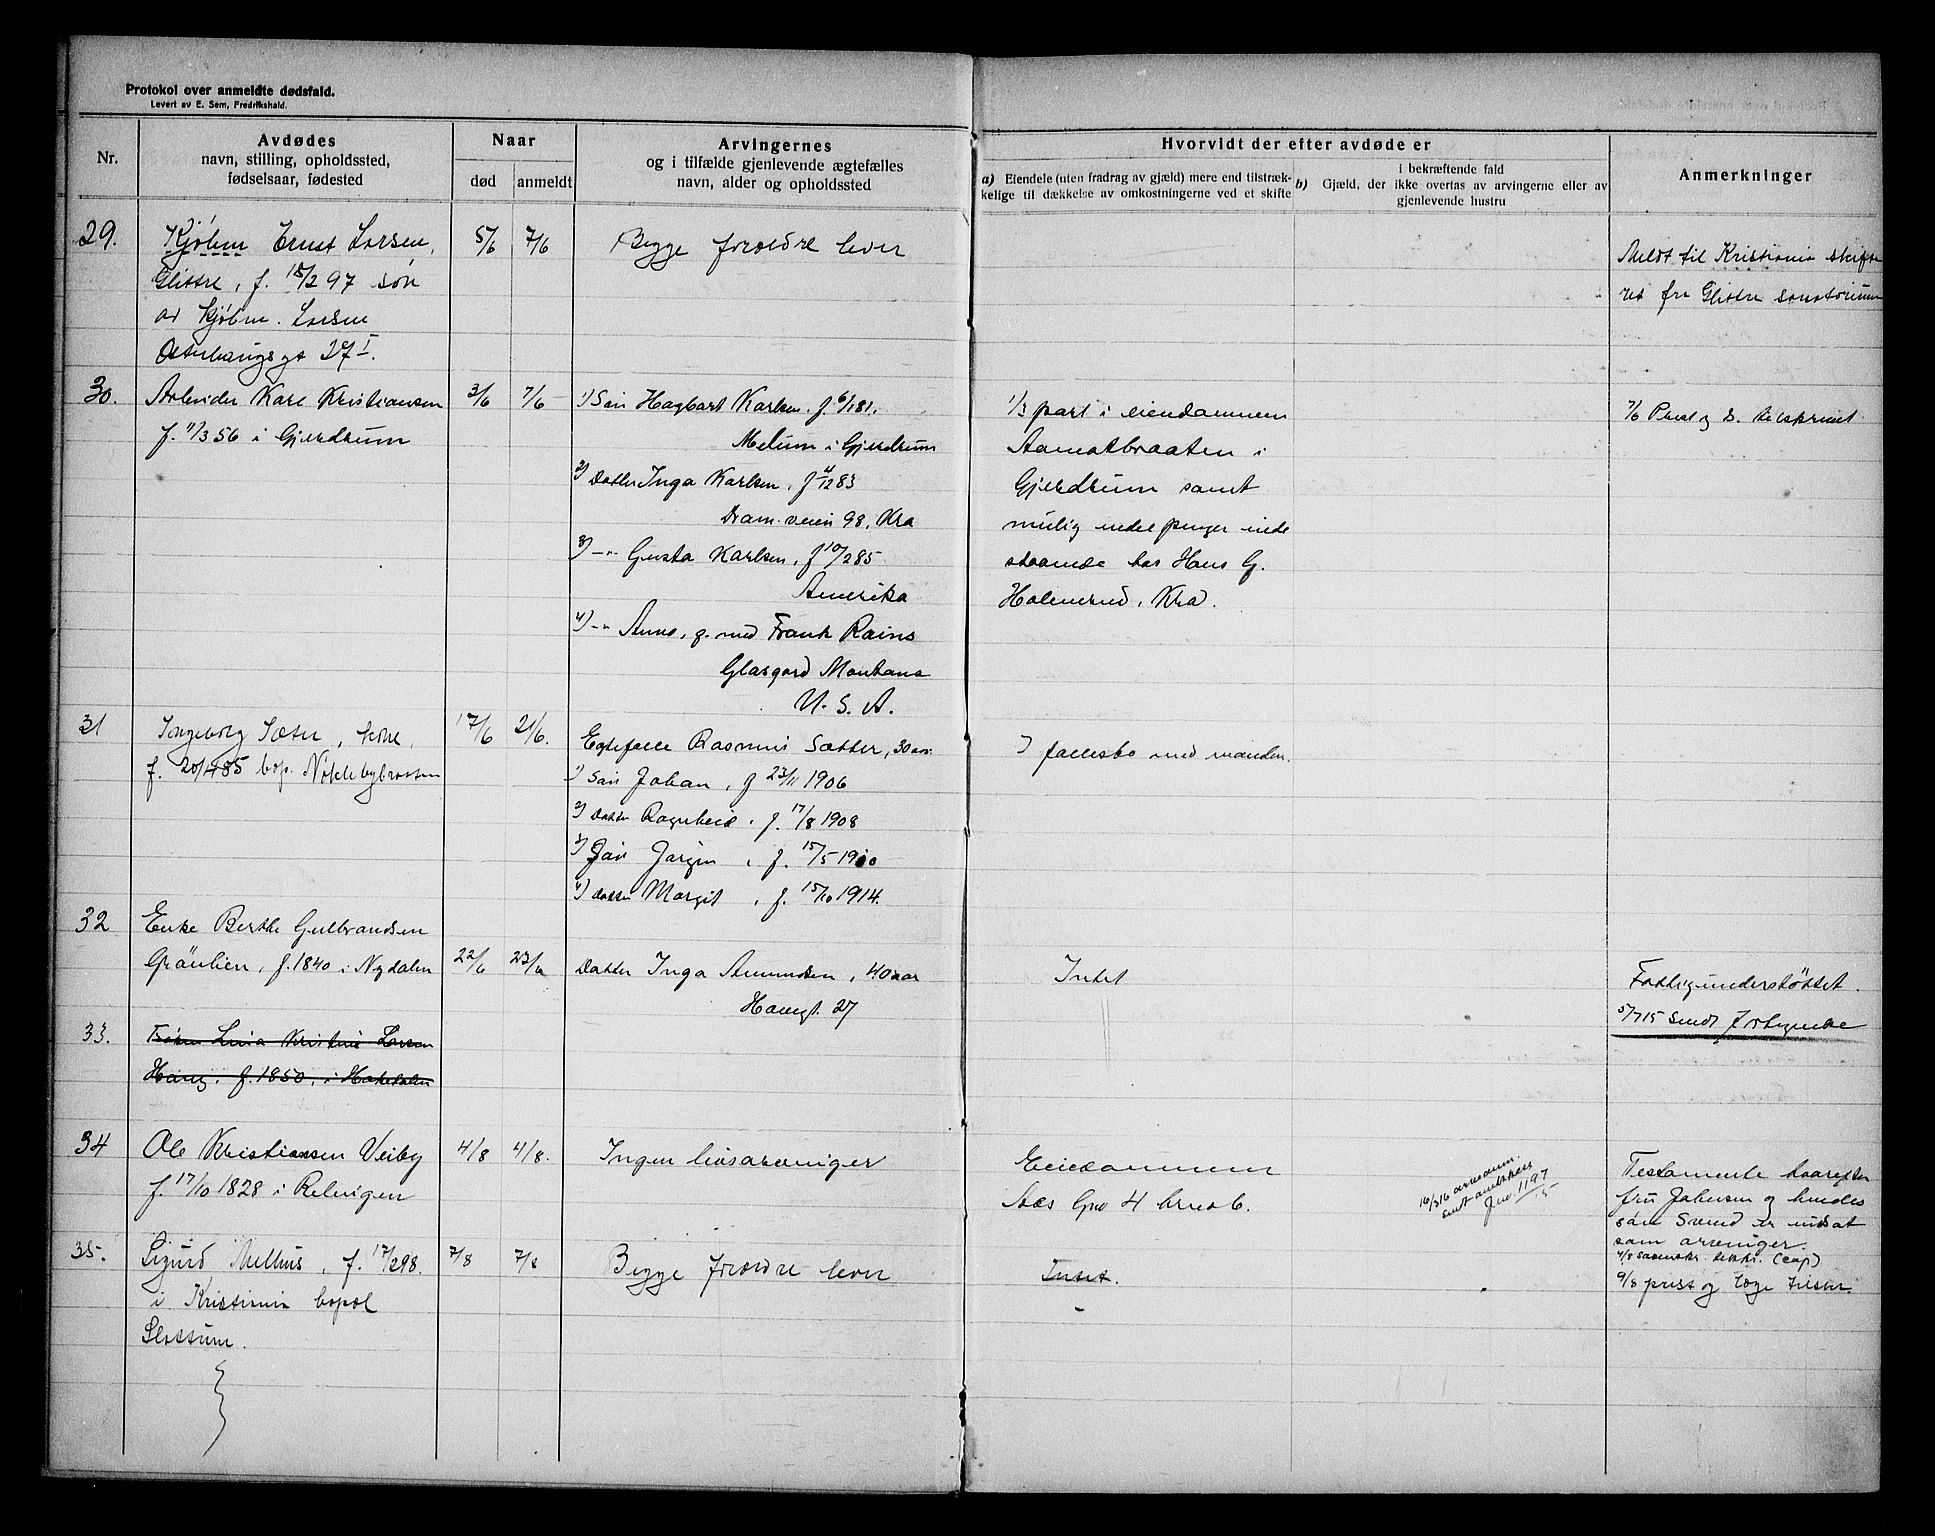 Protokol over anmeldte dødsfald.
Levert av E. Sem, Fredrikshald.
Nr.
Avdødes
navn, stilling, opholdssted,
fødselsaar, fødested
Naar
død
anmeldt
Arvingernes
og i tilfælde gjenlevende ægtefælles
navn, alder og opholdssted
Hvorvidt der efter avdøde er
a) Eiendele (uten fradrag av gjæld) mere end tilstræk-
kelige til dækkelse av omkostningerne ved et skifte
i bekræftende fald
b) Gjæld, der ikke overtas av arvingerne eller av
gjenlevende hustru
Anmerkninger
29.
Kjøbm Ernst Larsen,
Glittre, f. 15/2 97 søn
av Kjøbm. Larsen
Osterhausgs gt 27 I.
5/6
7/6
Begge forældre lever
Meldt til Kristiania skifte
ret fra Glittre sanatorium
30.
Arbeider Karl Kristiansen
f. 11/3 56 i Gjerdrum
3/6
7/6
1) Søn Hagbart Karlsen. f 6/1 81.
Melum i Gjerdrum
2) Datter Inga Karlsen, f 4/12 83
Dram. veien 98, Kra
3) -"- Gusta Karlsen, f 10/2 85
Amerika
4) -"- Anna, g. med Frank Rains
Glasgord Montana
U. S. A.
1/3 part i eiendommen
Aamotbraaten i
Gjerdrum samt
mulig endel penger inde
staaende hos Hans G.
Holmerud, Kra.
7/6 Prest og D. tilskrevet
31
Ingeborg Sæter, kone,
f. 20/4 85 bop. Nøklebybraaten
17/6
21/6.
Egtefælle Rasmus Sætter, 30 aar
1) Søn Johan, f 23/11 1906
2) Datter Ragnheid, f. 17/8 1908
3) Søn Jørgen, f. 15/5 1910
4) Datter Margit, f. 15/10 1914.
I fællesbo med manden.
32
Enke Berthe Gulbrandsen
Grönlien, f. 1840 i Nydalen
22/6
23/6
Datter Inga Amundsen, 40 aar
Haugt. 27
Intet
Fattigunderstöttet.
5/7 15 Sendt
33.
Lina Kristine Larsen
Haug, f. 1850, i Hakedalen
34
Ole Kristiansen Veiby
f. 17/10 1828 i Relingen
4/8
4/8.
Ingen livsarvinger
Eiendommen
Aas Gno 4 brno 6.
16/3 16
Jno. 1197/15
Testamente hvorefter
fru Johnsen og hendes
sön Svend er indsat
som arvinger.
35.
Sigurd Melhus, f. 17/2 98.
i Kristiania bopæl
Slattum.
7/8
7/8
Begge forældre lever
Intet.
9/8 prest og læge tilskr.